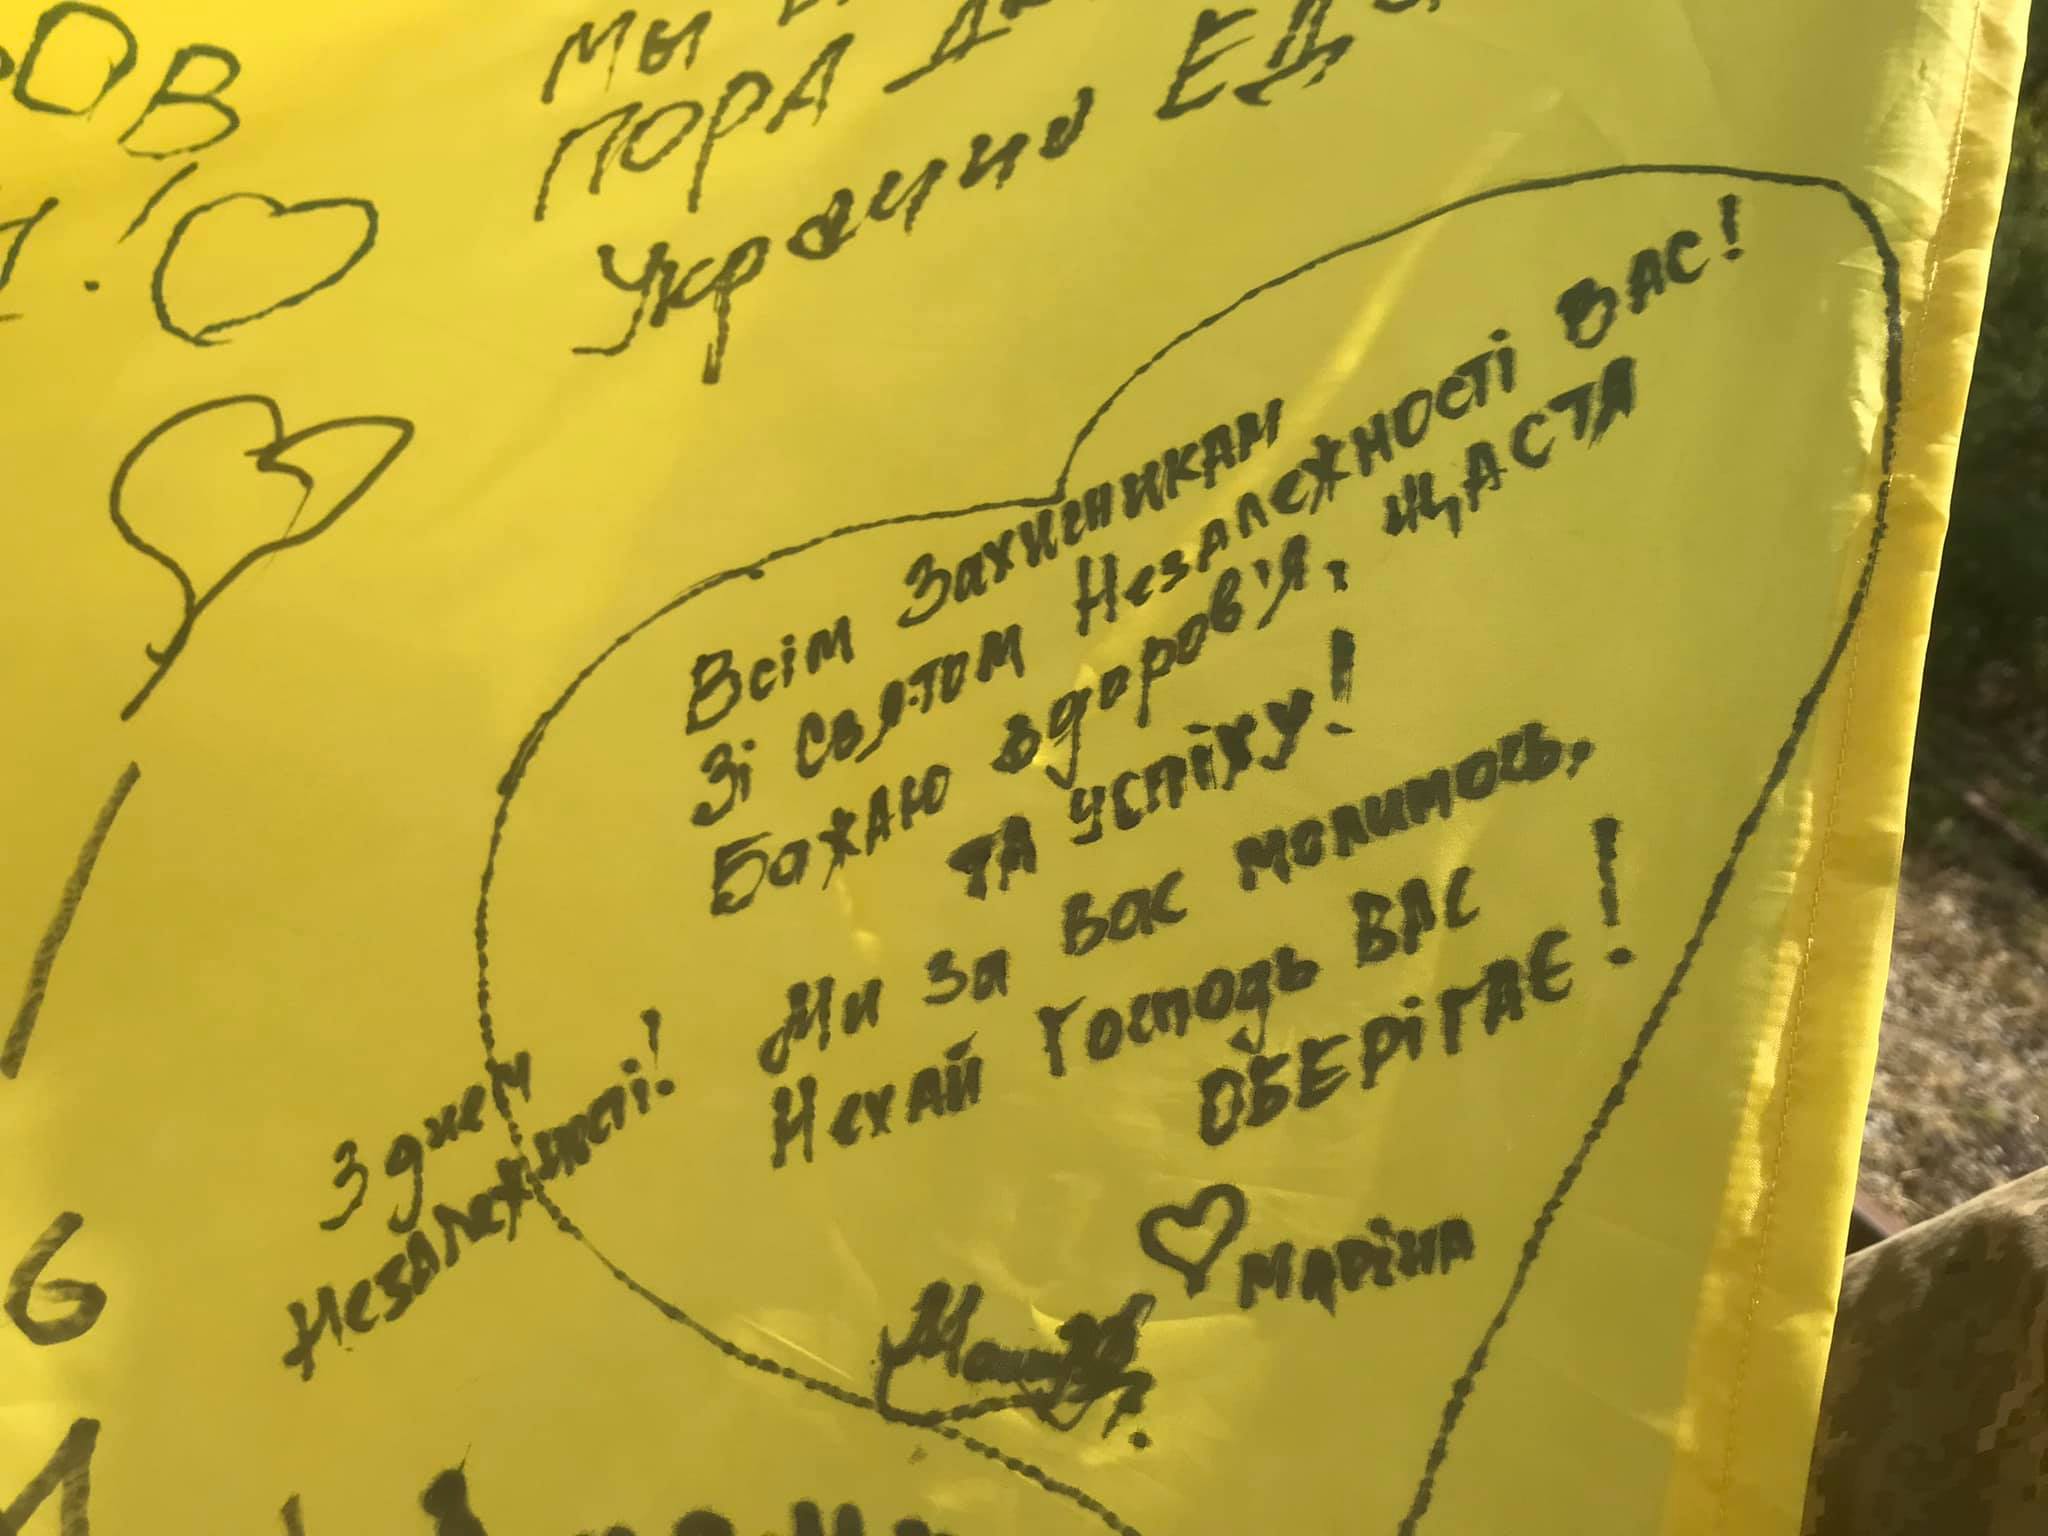 ОВ
МЫ
ПОРА
Украини ЕД
Всім Захигникам
Зі Святом Незалежності ВАС!
Бажаю здоров'я, ЩАСТЯ
ТА УСПІХУ!
Ми за вас молимось,
Нехай Господь ВАС
ОБЕРІГАЄ!
МАРІНА
З днем
Незалежності!